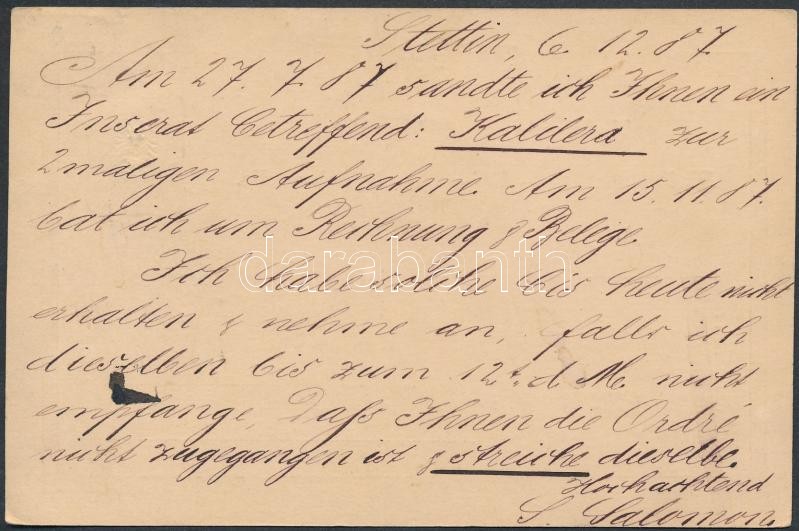 Stettin, 6. 12. 87.
Am 27. 7. 87 sandte ich Ihnen ein
Inserat betreffend: Kalilera zur
2maligen Aufnahme. Am 15. 11. 87.
bat ich um Rechnung & Belege
Ich habe solche bis heute nicht
erhalten & nehme an, falls ich
dieselben bis zum 12t. d M. nicht
empfange, Daß Ihnen die Ordré
nicht zugegangen ist & streiche dieselbe.
Hochachtend
S. Salomon.
darabanth